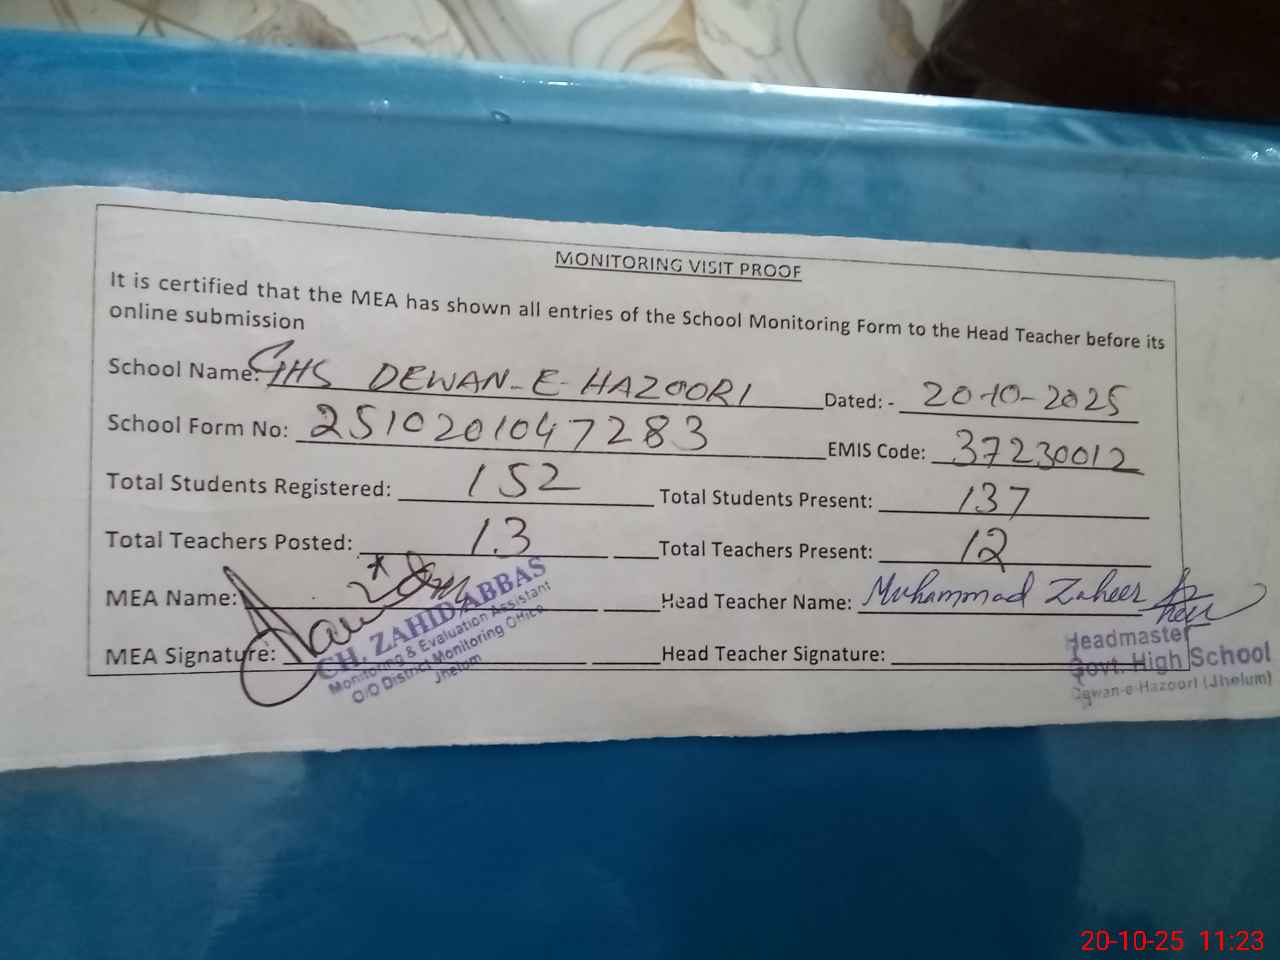 MONITORING VISIT PROOF
It is certified that the MEA has shown all entries of the School Monitoring Form to the Head Teacher before its
online submission
School Name: GHS DEWAN-E-HAZOORI Dated: - 20-10-2025
School Form No: 2510201047283 EMIS Code: 37230012
Total Students Registered: 152 Total Students Present: 137
Total Teachers Posted: 13 Total Teachers Present: 12
MEA Name: Head Teacher Name: Muhammad Zaheer
MEA Signature: Head Teacher Signature:
CH. ZAHID ABBAS
Monitoring & Evaluation Assistant
O/O District Monitoring Office
Jhelum
Headmaster
Govt. High School
Dewan-e-Hazoori (Jhelum)
20-10-25 11:23